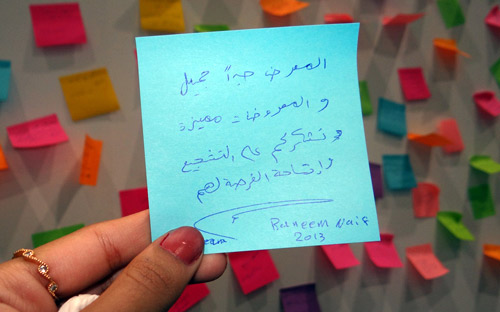 المعرض جداً جميل
و المعروضات مميزة
و نشكركم على التشجيع
و إتاحة الفرصة لهم
Raneem Naif
2013